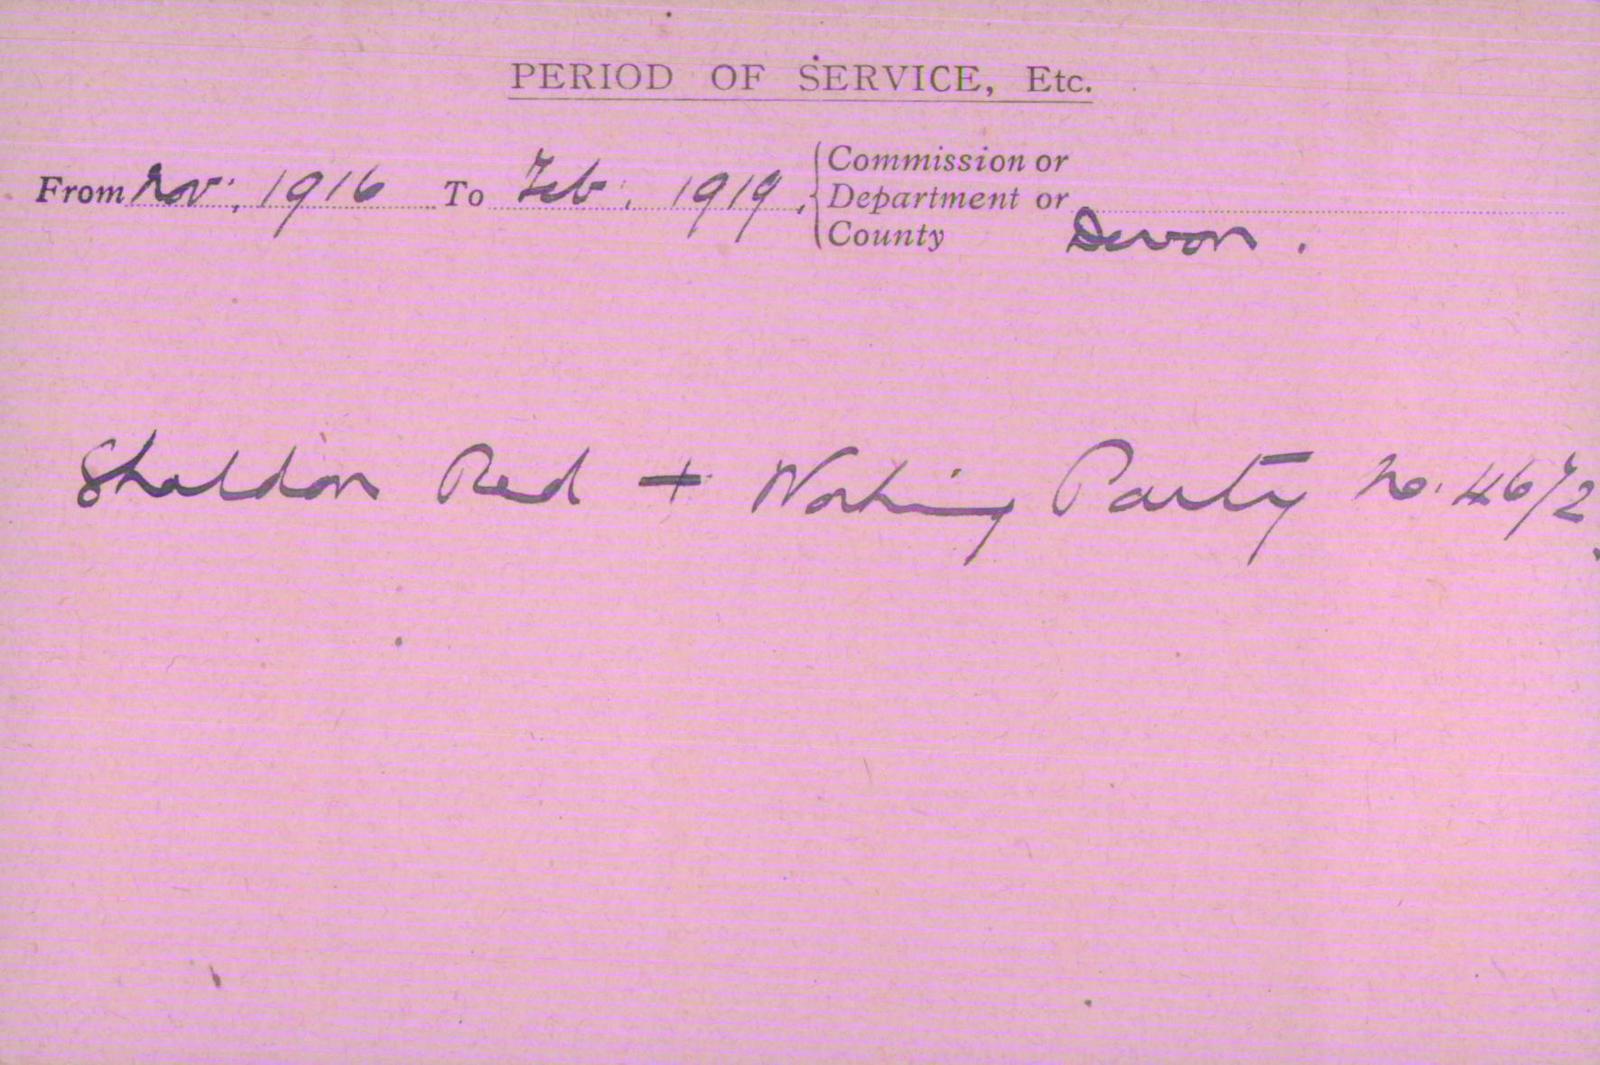 PERIOD OF SERVICE, Etc.
From Nov: 1916 To Feb: 1919. Commission or
Department or
County Devon.
Shaldon Red + Working Party No. 4672.